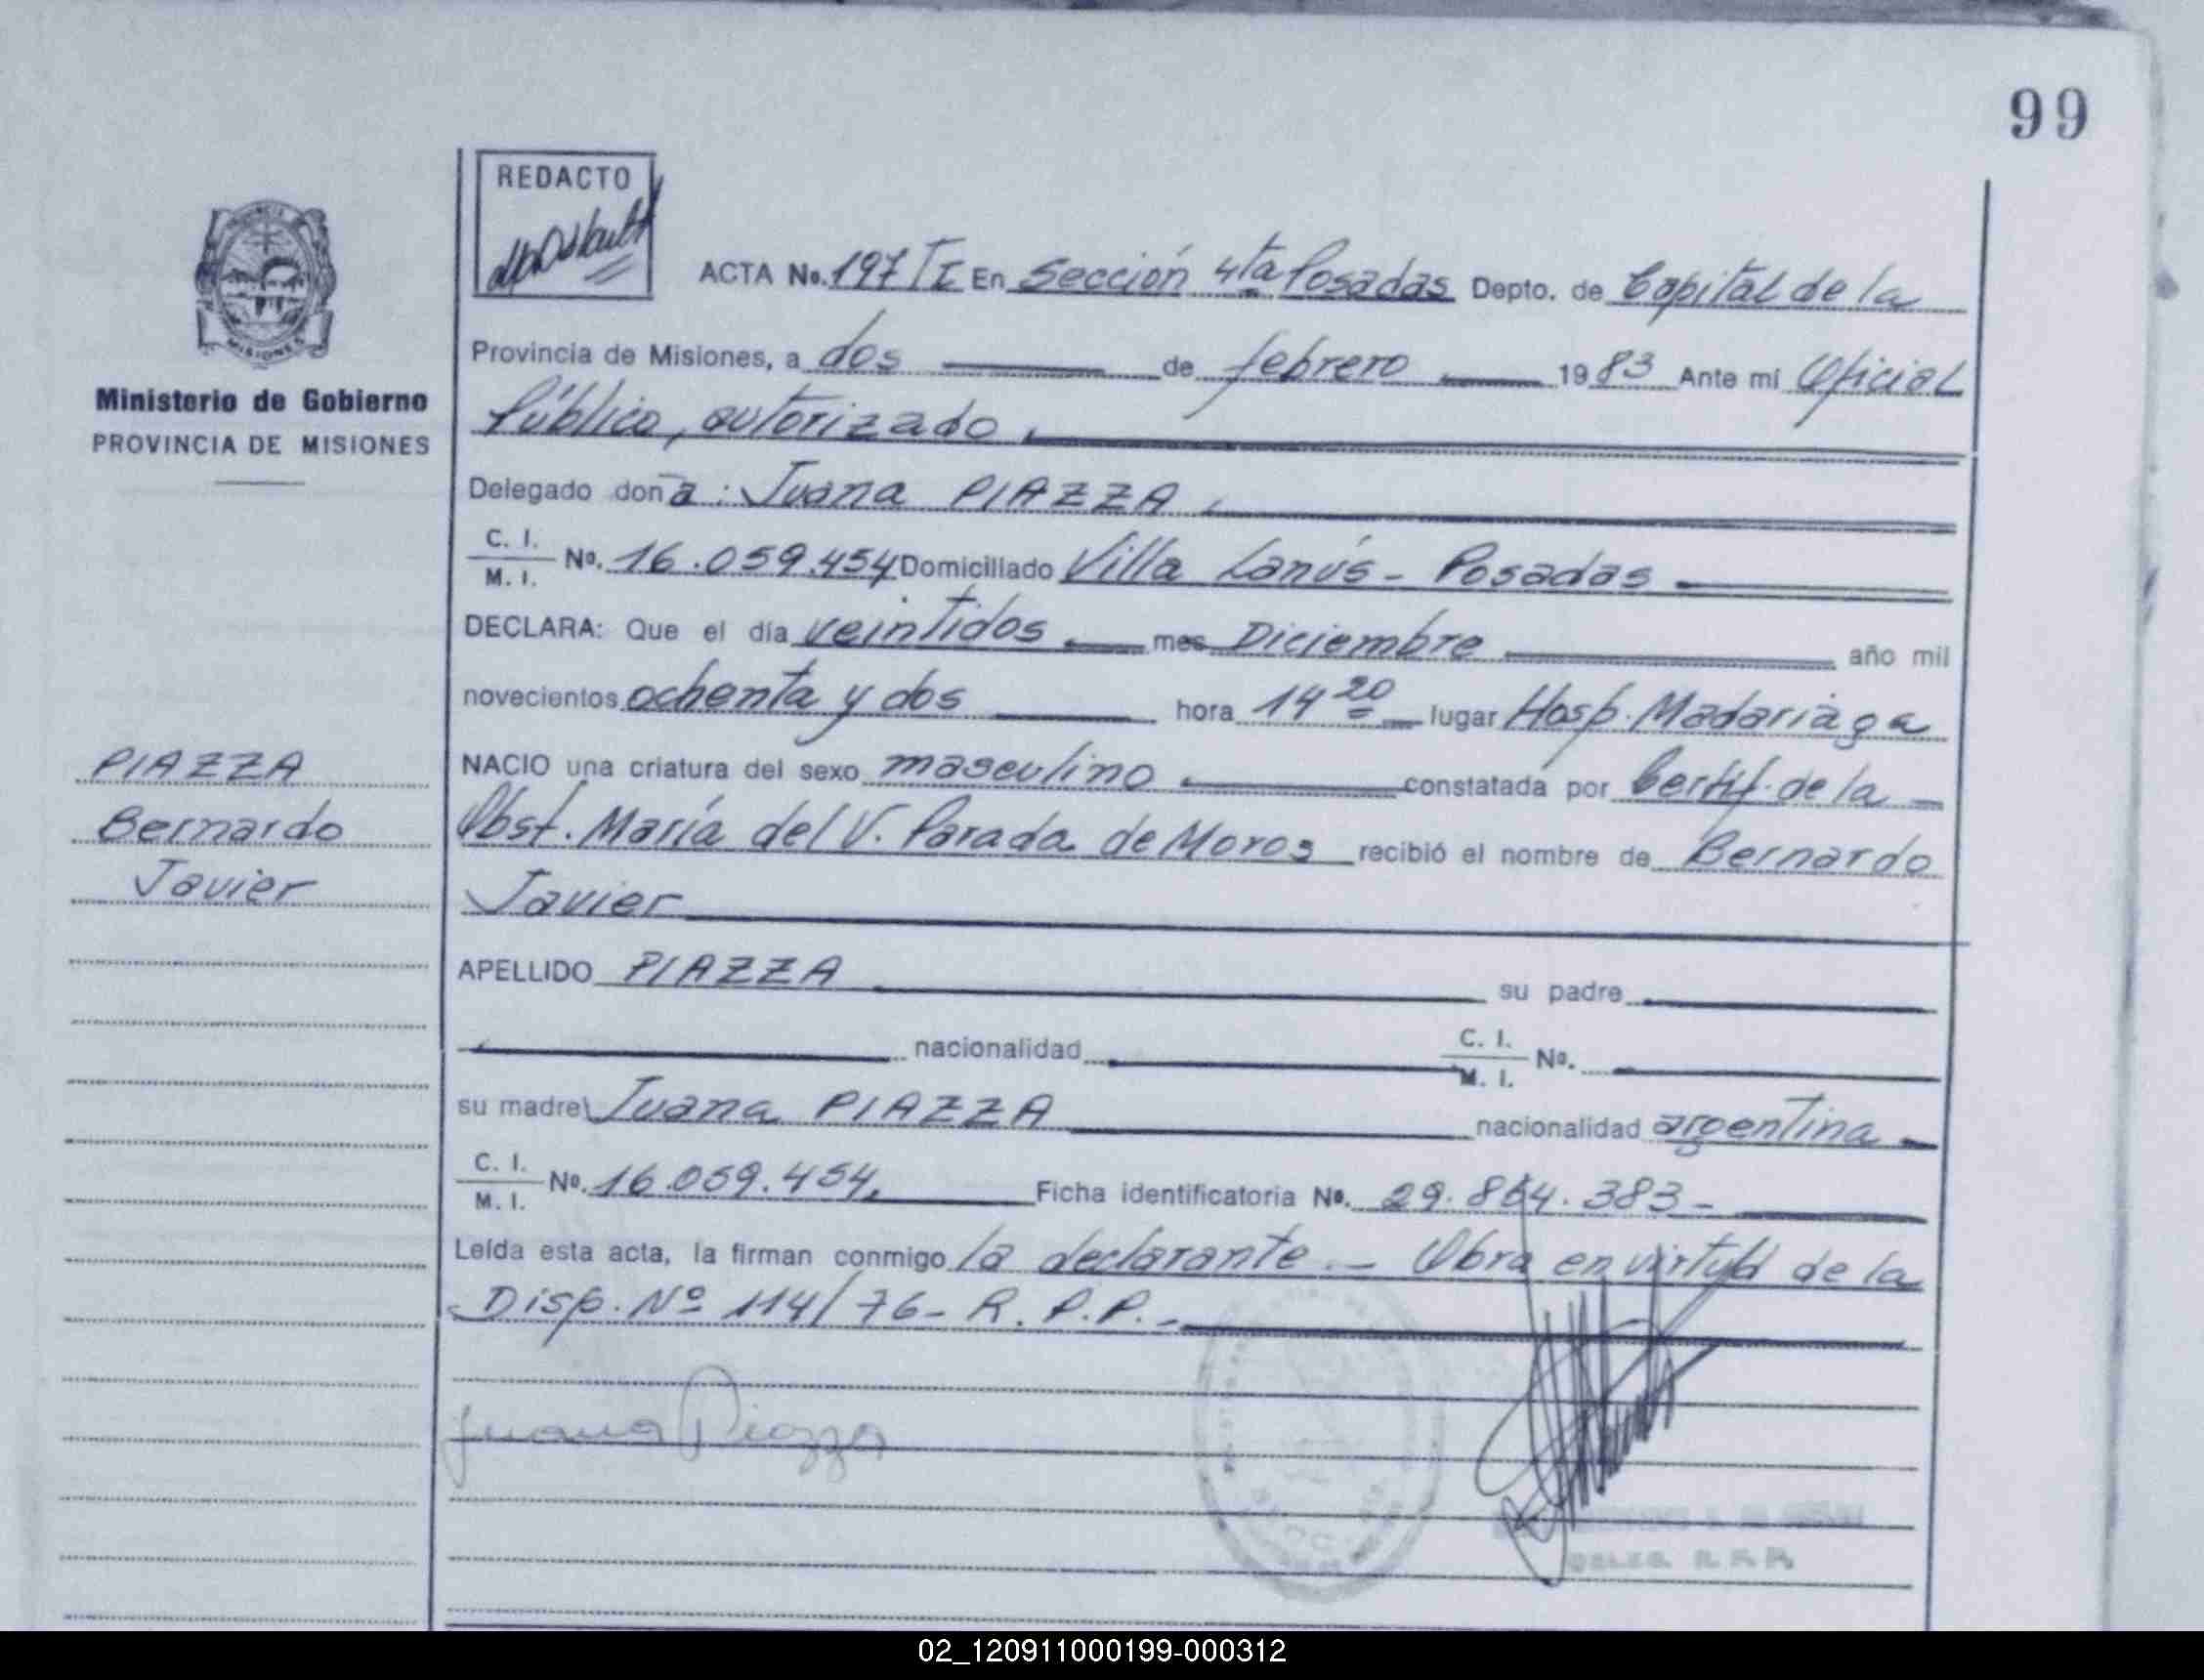 99
REDACTO
ACTA No. 197 T I En Sección 4ta Posadas Depto. de Capital de la
MISIONES
Provincia de Misiones, a dos de febrero 1983 Ante mí Oficial
Ministerio de Gobierno
Público, autorizado
PROVINCIA DE MISIONES
Delegado doña: Juana PIAZZA
C. I.
M. I. No. 16.059.454 Domiciliado Villa Lanús - Posadas
DECLARA: Que el día veintidos mes Diciembre año mil
novecientos ochenta y dos hora 14 20 lugar Hosp. Madariaga
PIAZZA
NACIO una criatura del sexo masculino constatada por Certif. de la
Bernardo
Obst. María del V. Parada de Moros recibió el nombre de Bernardo
Javier
Javier
APELLIDO PIAZZA su padre
nacionalidad C. I.
M. I. No.
su madre Juana PIAZZA nacionalidad argentina
C. I.
M. I. No. 16.059.454. Ficha identificatoria No. 29.864.383-
Leída esta acta, la firman conmigo la declarante. - Obra en virtud de la
Disp. Nº 114/76- R. P. P. -
Juana Piazza
DELEG. R. P. P.
02_120911000199-000312